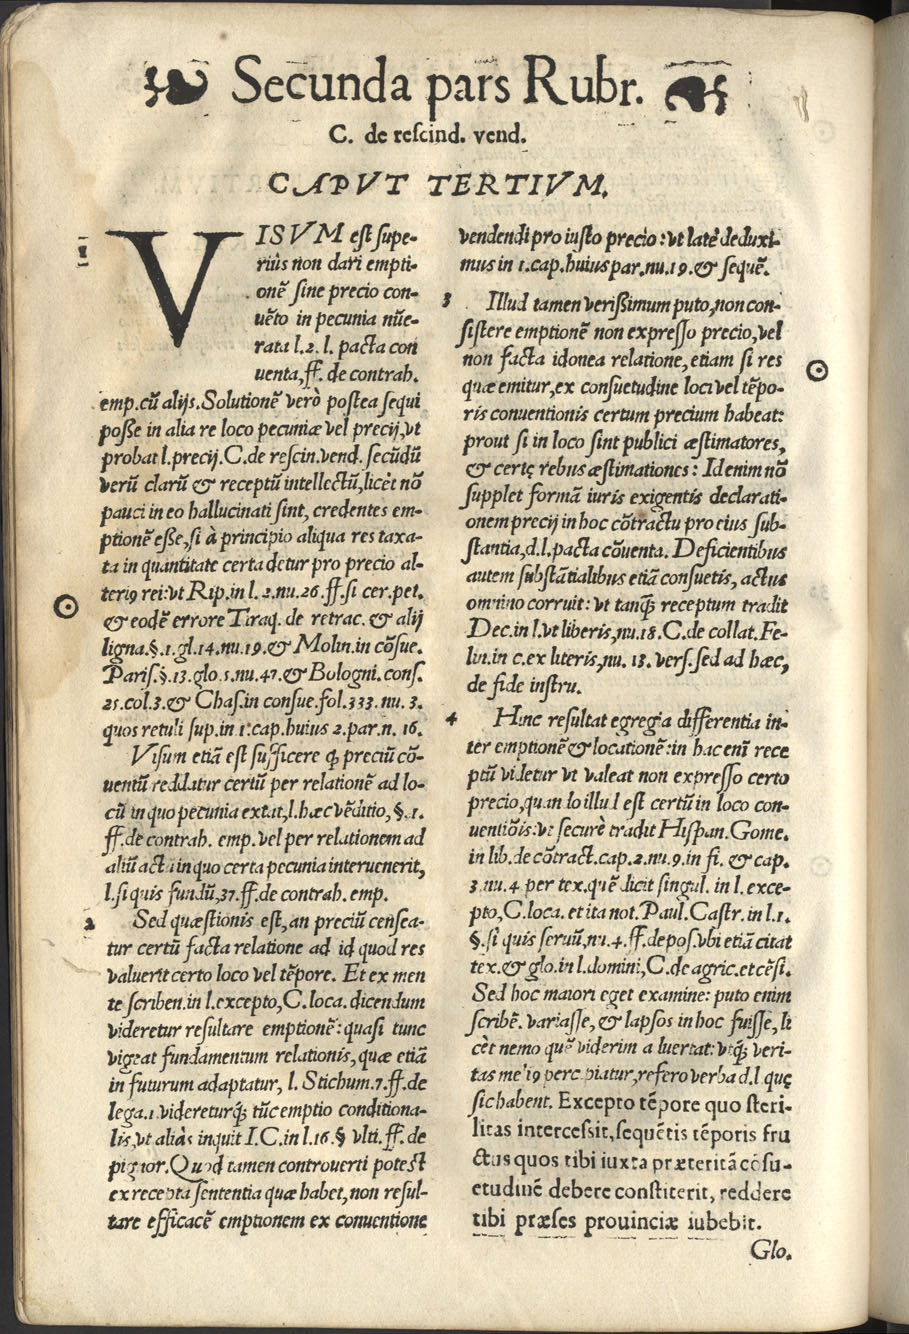 Secunda pars Rubr.
C. de rescind. vend.
CAPVT TERTIVM.
1
VISVM est supe-
riùs non dari empti-
onẽ sine precio con-
uẽto in pecunia nũe-
rata l.2. l. pacta con
uenta, ff. de contrah.
emp. cũ alijs. Solutionẽ verò postea sequi
posse in alia re loco pecuniæ vel precij, vt
probat l. precij. C. de rescin. vend. secũdũ
verũ clarũ & receptũ intellectũ, licèt nõ
pauci in eo hallucinati sint, credentes em-
ptionẽ esse, si à principio aliqua res taxa-
ta in quantitate certa detur pro precio al-
teri9 rei: vt Rip. in l. 2. nu. 26. ff. si cer. pet.
& eodẽ errore Tiraq. de retrac. & alij
ligna. §. 1. gl. 14. nu. 19. & Molin. in cõsue.
Paris. §. 13. glo. 5. nu. 47. & Bologni. cons.
25. col. 3. & Chas. in consue. fol. 333. nu. 3.
quos retuli sup. in 1. cap. huius 2. par. n. 16.
Visum etiã est sufficere q̃ preciũ cõ-
uentũ reddatur certũ per relationẽ ad lo-
cũ in quo pecunia extat, l. hæc vẽditio, §. 1.
ff. de contrah. emp. vel per relationem ad
aliũ actũ in quo certa pecunia interuenerit,
l. si quis fundũ, 37. ff. de contrah. emp.
2
Sed quæstionis est, an preciũ censea-
tur certũ facta relatione ad id quod res
valuerit certo loco vel tẽpore. Et ex men
te scriben. in l. excepto, C. loca. dicendum
videretur resultare emptionẽ: quasi tunc
vigeat fundamentum relationis, quæ etiã
in futurum adaptatur, l. Stichum. 7. ff. de
lega. 1. videreturq̃ tũc emptio conditiona-
lis, vt aliàs inquit I.C. in l. 16. § vlti. ff. de
pignor. Quod tamen controuerti potest
ex recepta sententia quæ habet, non resul-
tare efficacẽ emptionem ex conuentione
vendendi pro iusto precio: vt latè deduxi-
mus in 1. cap. huius par. nu. 19. & sequẽ.
3
Illud tamen verissimum puto, non con-
sistere emptionẽ non expresso precio, vel
non facta idonea relatione, etiam si res
quæ emitur, ex consuetudine loci vel tẽpo-
ris conuentionis certum precium habeat:
prout si in loco sint publici æstimatores,
& certę rebus æstimationes: Id enim nõ
supplet formã iuris exigentis declarati-
onem precij in hoc cõtractu pro eius sub-
stantia, d. l. pacta cõuenta. Deficientibus
autem substãtialibus etiã consuetis, actus
omnino corruit: vt tanq̃ receptum tradit
Dec. in l. vt liberis, nu. 18. C. de collat. Fe-
lin. in c. ex literis, nu. 13. vers. sed ad hæc,
de fide instru.
4
Hinc resultat egregia differentia in-
ter emptionẽ & locationẽ: in hac enĩ rece
ptũ videtur vt valeat non expresso certo
precio, quando illud est certũ in loco con-
uentiõis: vt securè tradit Hispan. Gome.
in lib. de cõtract. cap. 2. nu. 9. in fi. & cap.
3. nu. 4 per tex. quẽ dicit singul. in l. exce-
pto, C. loca. et ita not. Paul. Castr. in l. 1.
§. si quis seruũ, nu. 4. ff. depos. vbi etiã citat
tex. & glo. in l. domini, C. de agric. et cẽsi.
Sed hoc maiori eget examine: puto enim
scribẽ. variasse, & lapsos in hoc fuisse, li
cèt nemo quẽ viderim aduertat: vtq̃ veri-
tas meli9 percipiatur, refero verba d. l quę
sic habent. Excepto tẽpore quo steri-
litas intercessit, sequẽtis tẽporis fru
ctus quos tibi iuxta præteritã cõsu-
etudinẽ debere constiterit, reddere
tibi præses prouinciæ iubebit.
Glo.